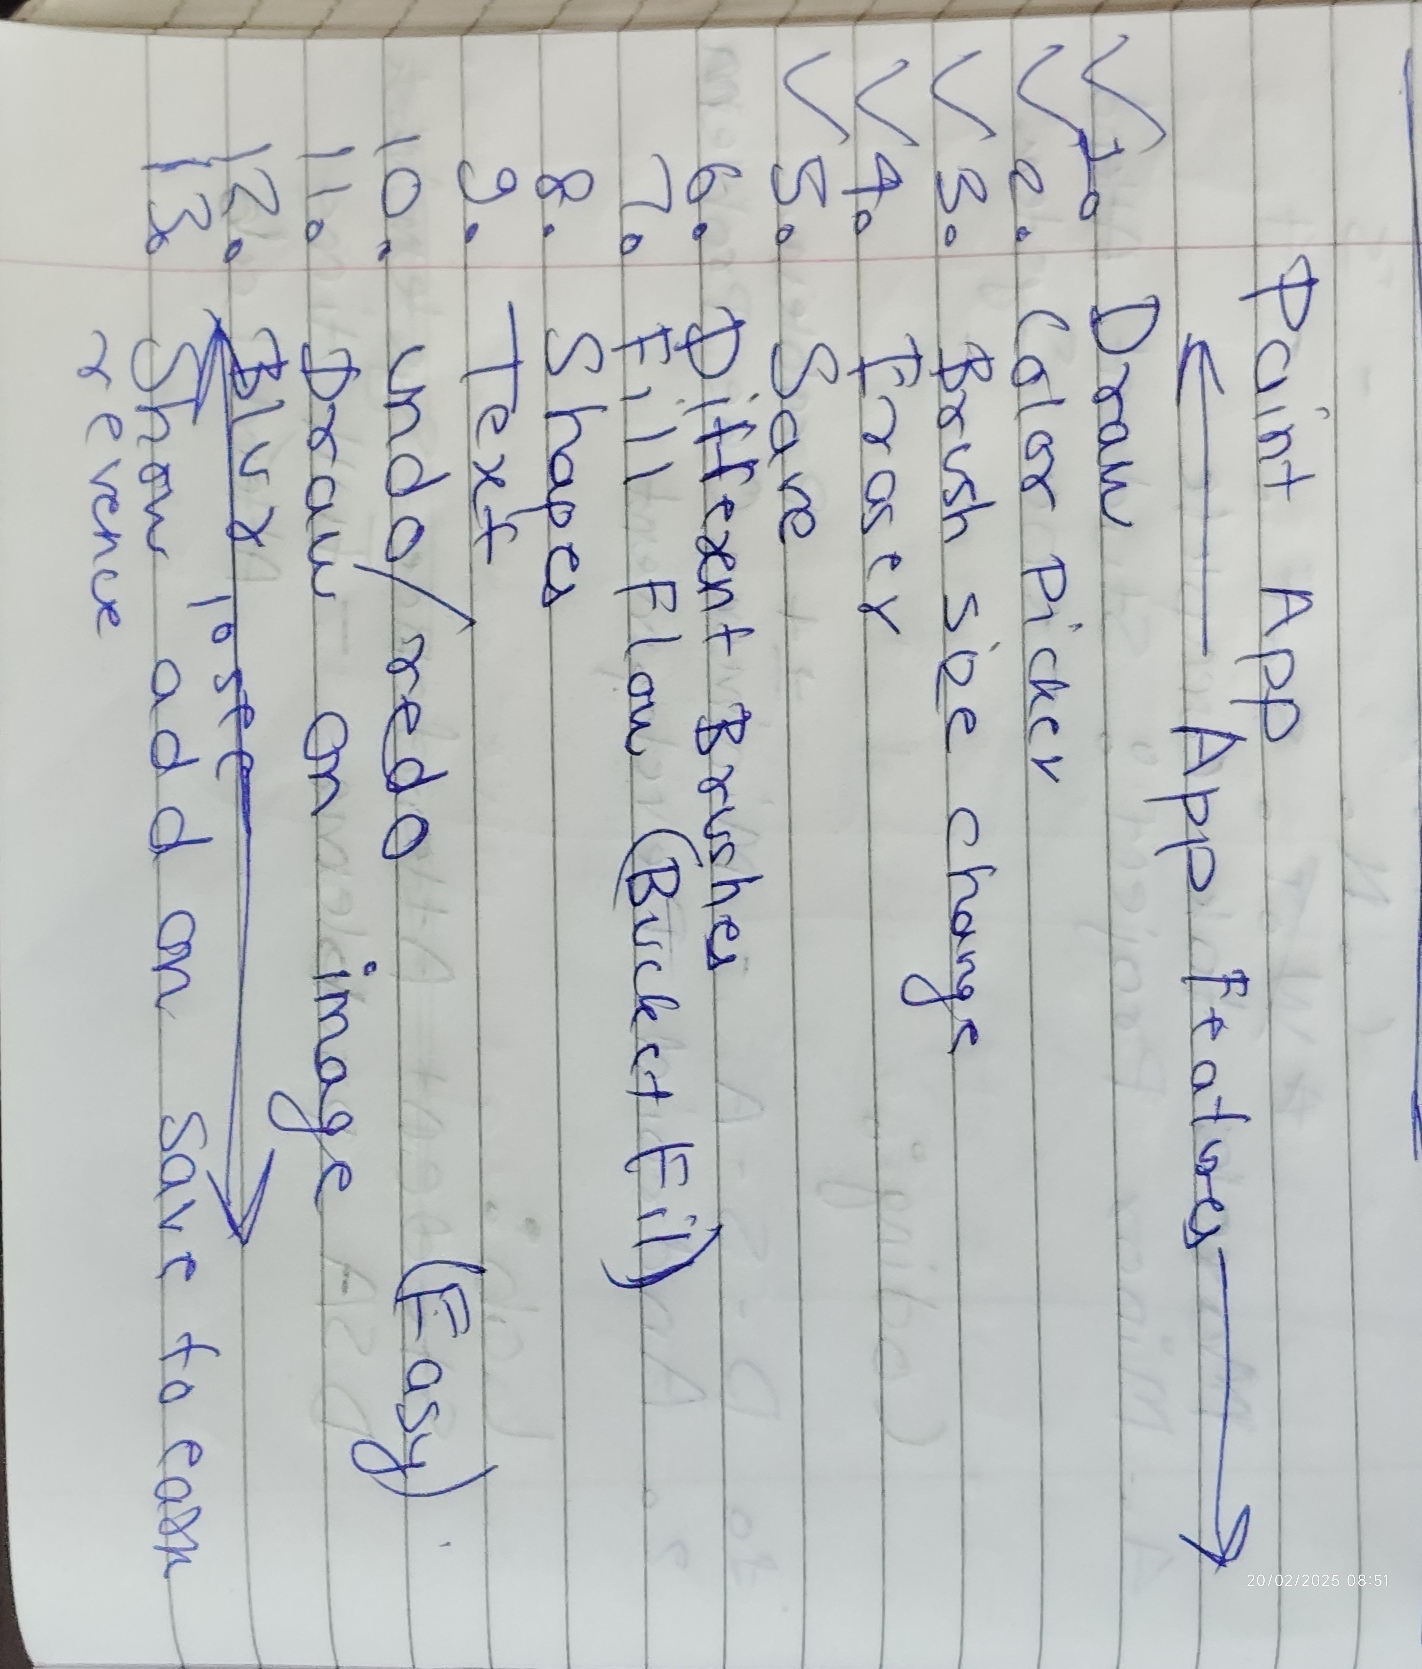 Paint App
App Features
1. Draw
2. Color Picker
3. Brush size change
4. Eraser
5. Save
6. Different Brushes
7. Fill Flow (Bucket Fil)
8. Shapes
9. Text
10. undo/redo (Easy)
11. Draw on image
12. Blur
10 sec
13. Show add on save to earn
revenue
20/02/2025 08:51